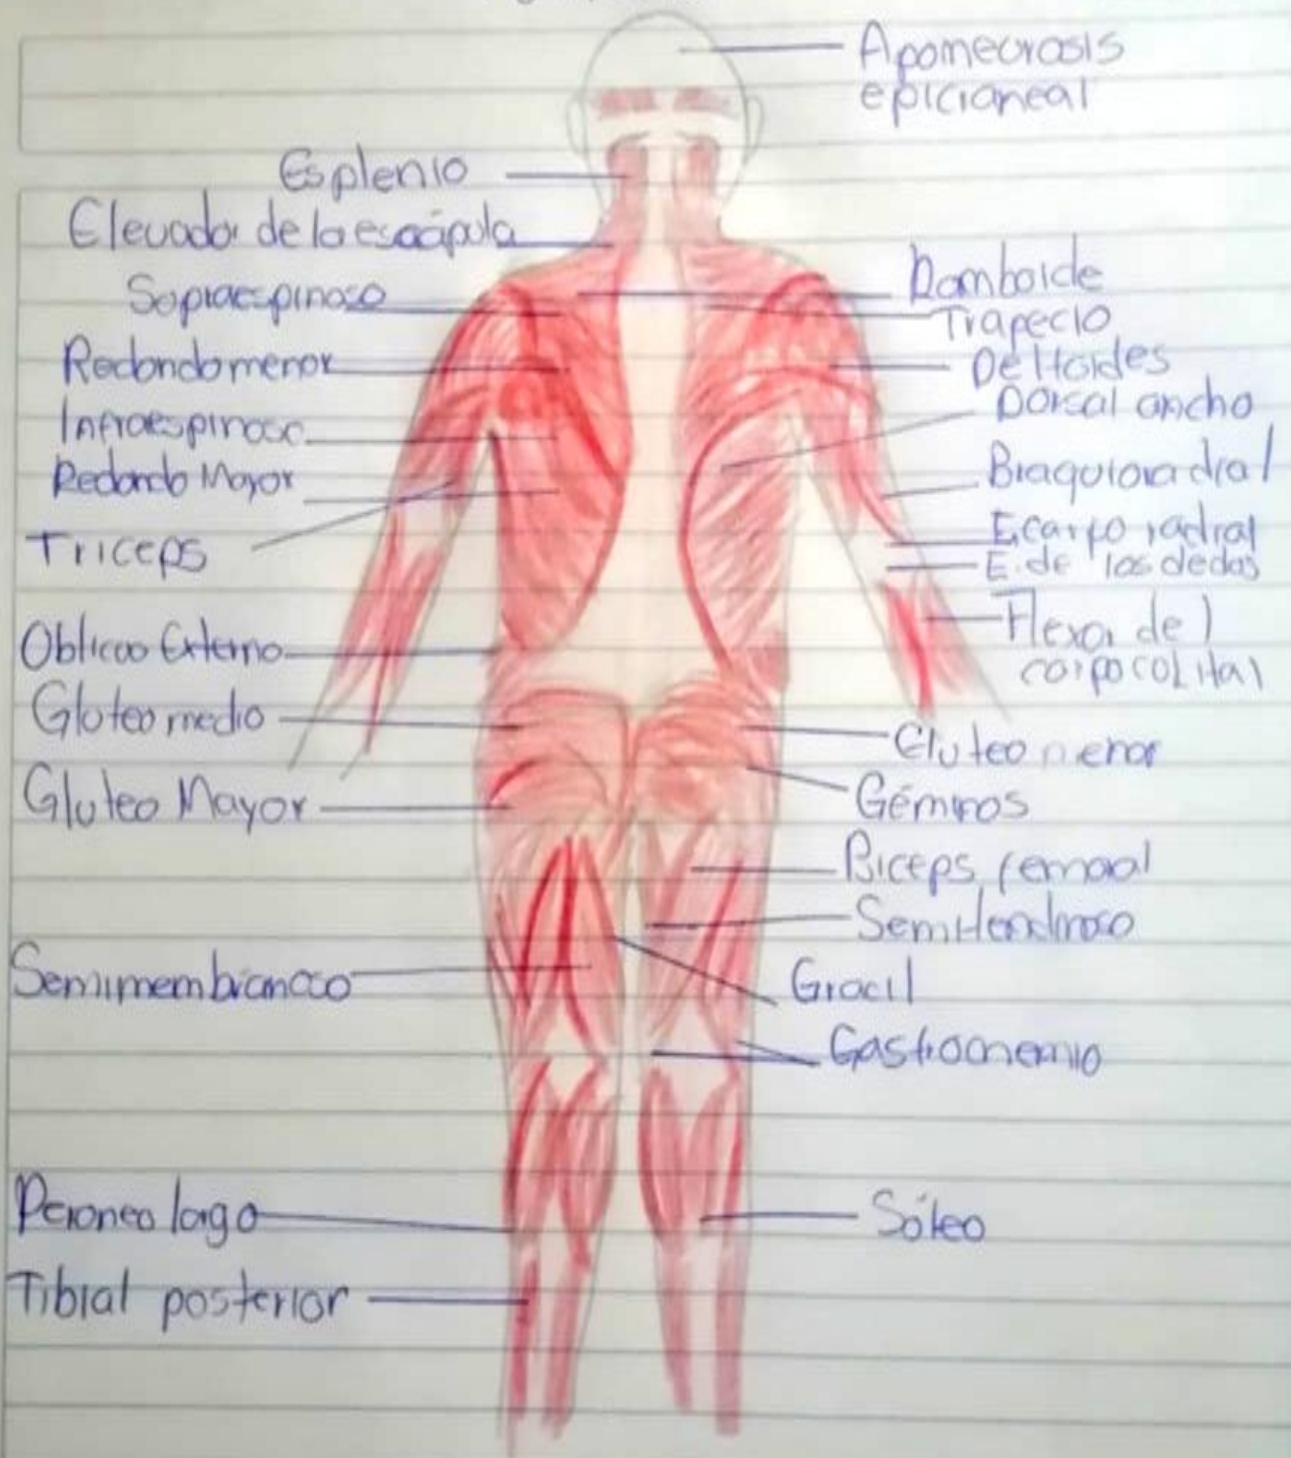 Aponeurosis
epicraneal
Esplenio
Elevador de la escápula
Sopraespinoso
Redondo menor
Infraespinoso
Redondo Mayor
Triceps
Oblicuo Externo
Gloteo medio
Gluteo Mayor
Semimembranoso
Peroneo largo
Tibial posterior
Romboide
Trapecio
Deltoides
Dorsal ancho
Braquioradial
E. carpo radial
E. de los dedos
Flexor del
carpo cobital
Gluteo menor
Géminos
Biceps femoral
Semitendinoso
Gracil
Gastrocnemio
Sóleo